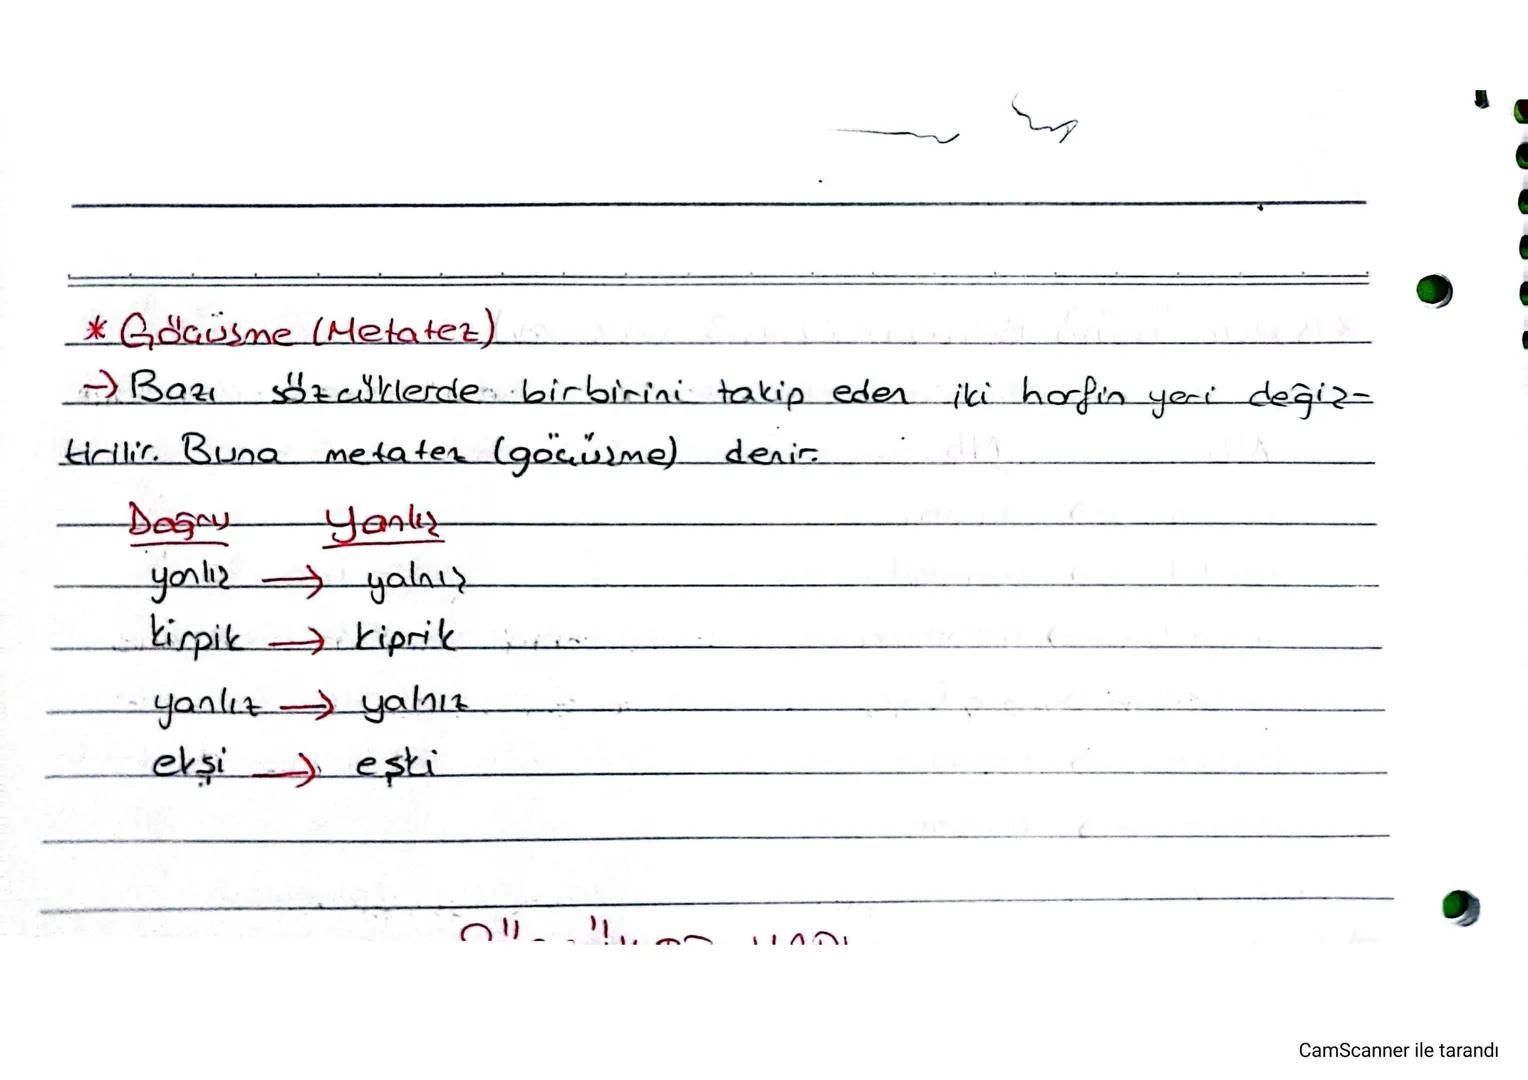 * Göçüşme (Metatez)
→ Bazı sözcüklerde birbirini takip eden iki harfin yeri değiş-
tirilir. Buna metatez (göçüşme) denir.
Doğru Yanlış
yanlız → yalnız
kirpik → kiprik
yanlız → yalnız
ekşi → eşki
CamScanner ile tarandı